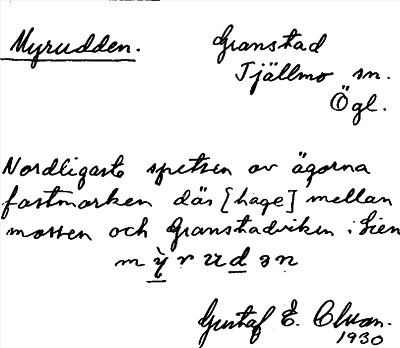 Myrudden.
Granstad
Tjällmo sn.
Ögl.
Nordligaste spetsen av ägorna
fastmarken där [hage] mellan
mossen och Granstadviken i Sien
m ỳ r u d ə n
Gustaf E.
1930